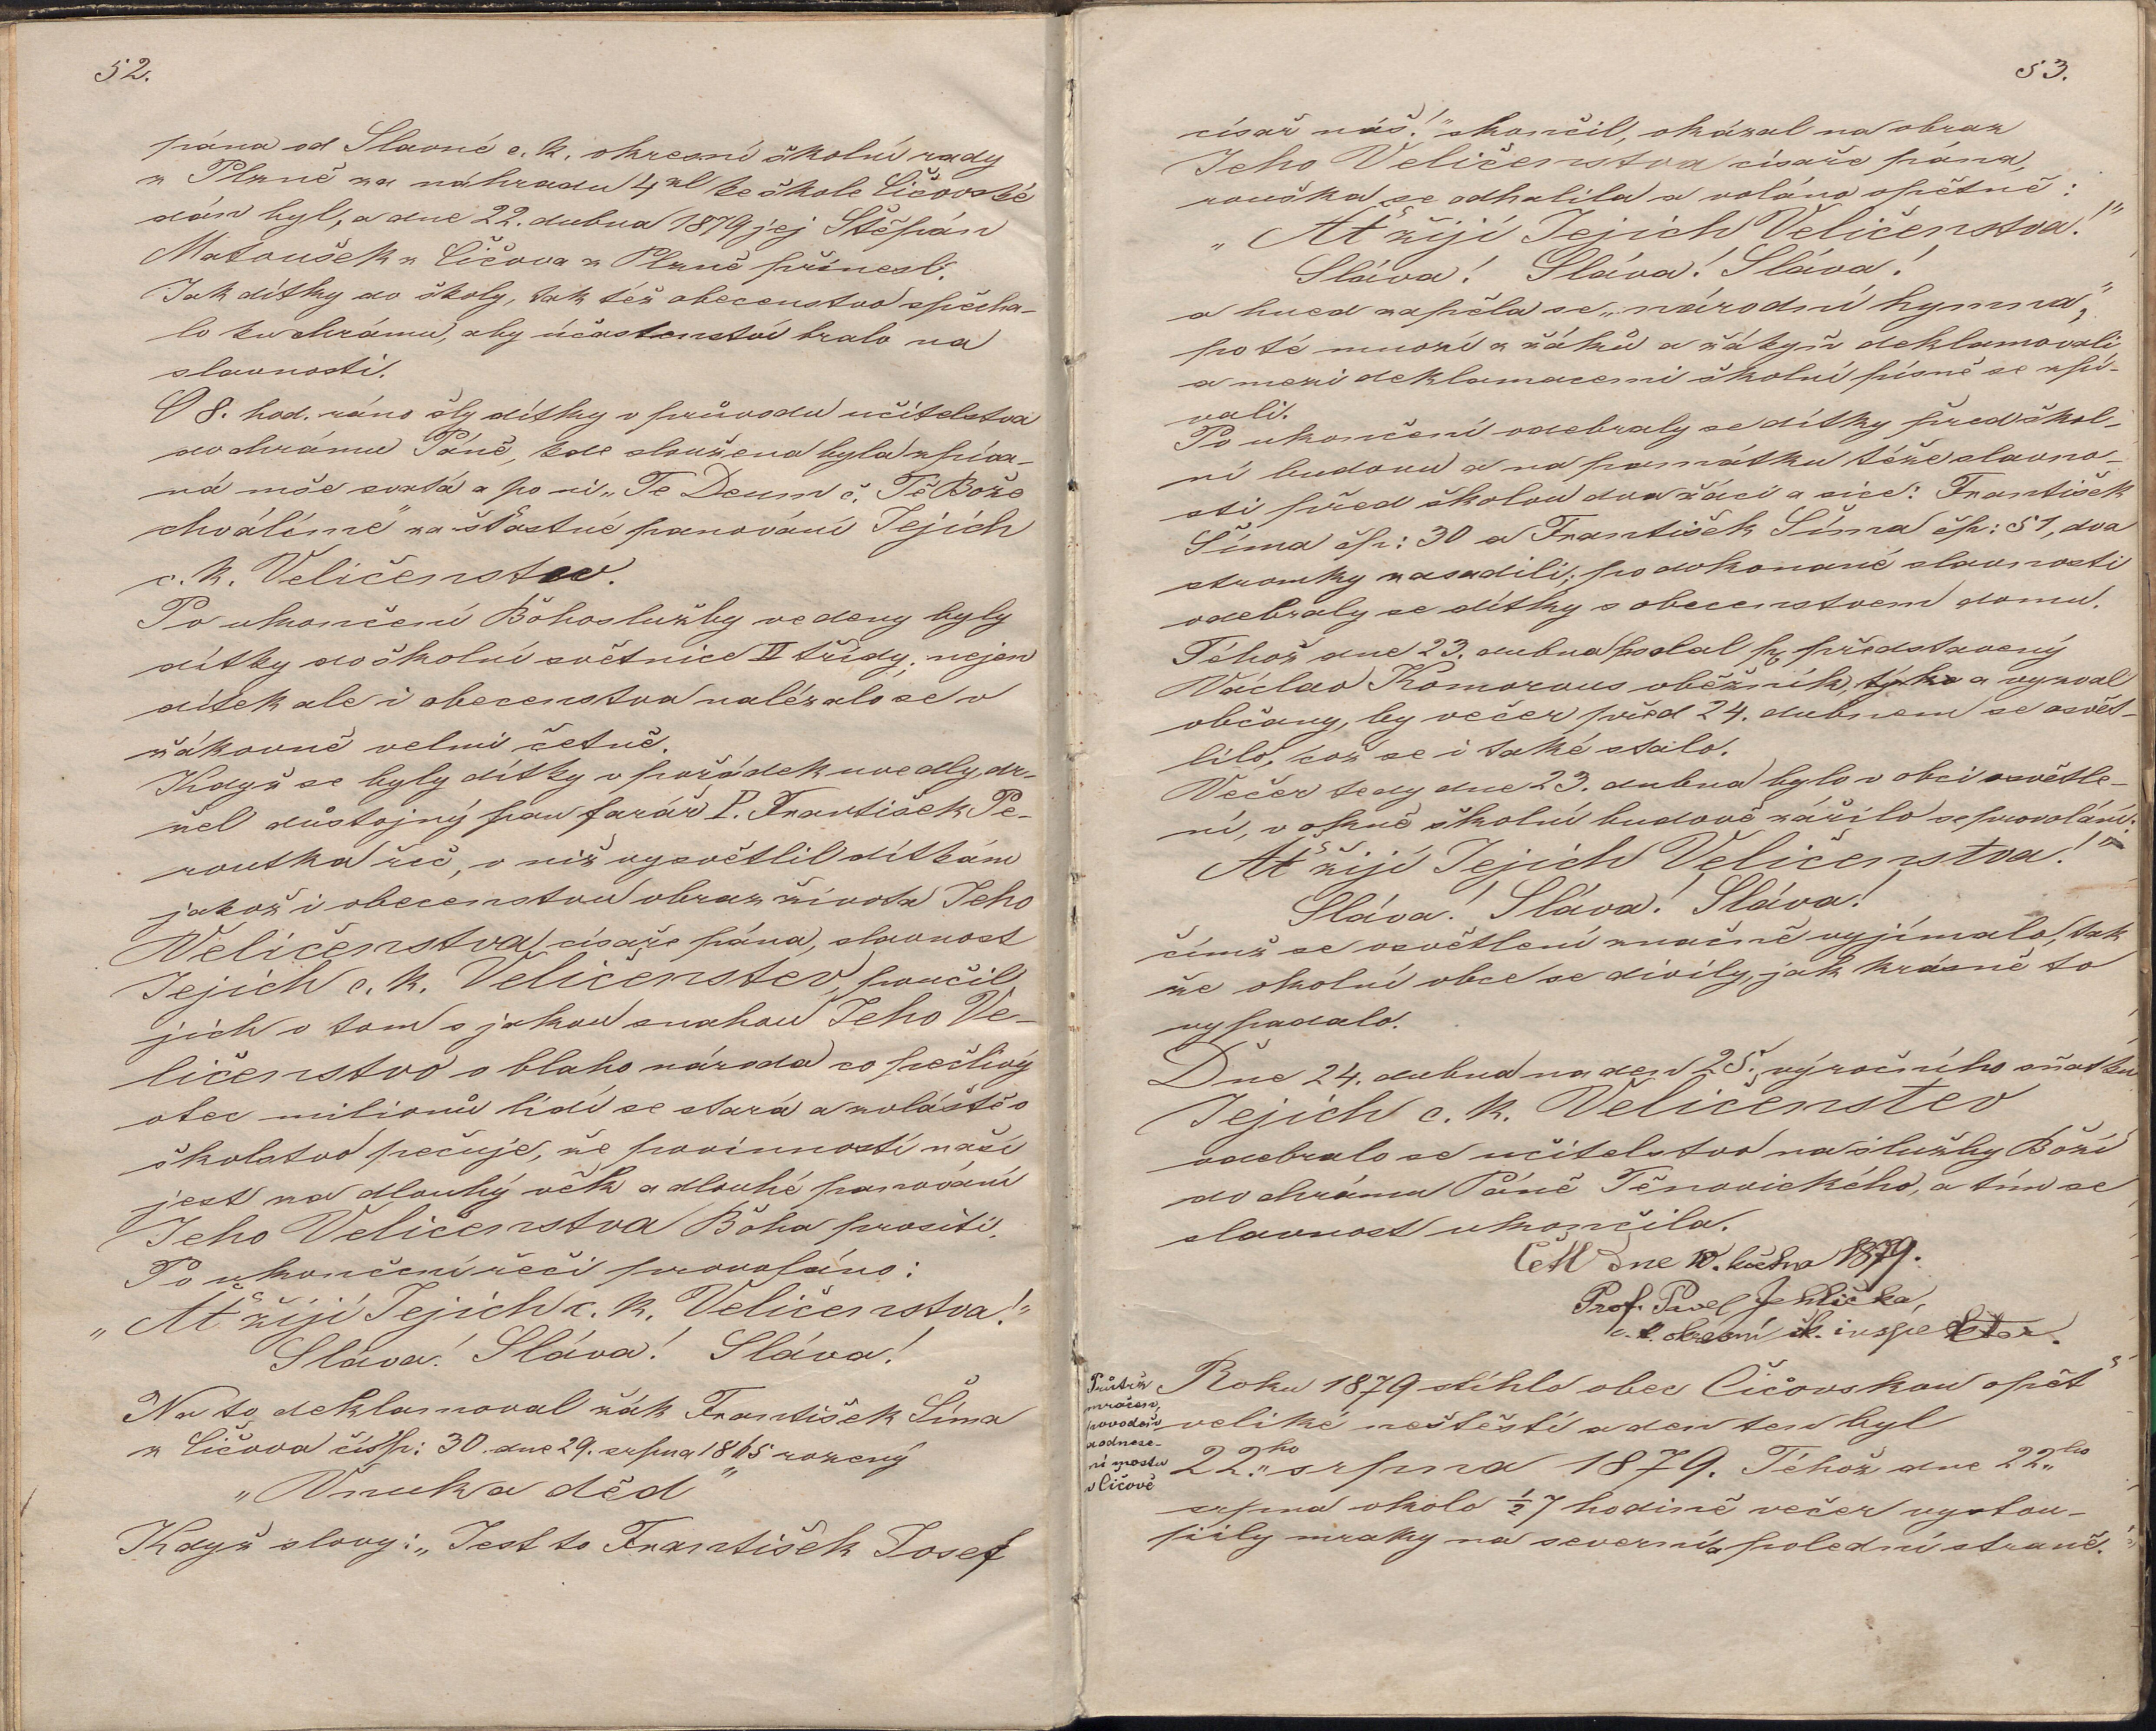 52.
pána od Slavné c. k. okresní školní rady
z Plzně za náhradu 4 zl ke škole Číčovské
dán byl, a dne 22. dubna 1879 jej Štěpán
Matoušek z Číčova z Plzně přinesl.
Jak dítky do školy, tak též obecenstvo spěcha-
lo ku chrámu, aby účastenství bralo na
slavnosti.
O 8. hod. ráno šly dítky v průvodu učitelstva
do chrámu Páně, kde sloužena byla zpíva-
ná mše svatá a po ní „Te Deum č. Tě Bože
chválíme" za šťastné panování Jejich
c. k. Veličenstev.
Po ukončení Bohoslužby vedeny byly
dítky do školní světnice II třídy; nejen
dítek ale i obecenstva nalézalo se v
žákovně velmi četně.
Když se byly dítky v pořádek uvedly, dr-
žel důstojný pan farář P. František Pe-
routka řeč, v níž vysvětlil dítkám
jakož i obecenstvu obraz života Jeho
Veličenstva císaře pána, slavnost
Jejich c. k. Veličenstev, poučil
jich o tom s jakou snahou Jeho Ve-
ličenstvo o blaho národa co pečlivý
otec milionů lidí se stará a zvláště o
školstvo pečuje, že povinností naší
jest za dlouhý věk a dlouhé panování
Jeho Veličenstva Boha prositi.
Po ukončení řeči provoláno:
„Ať žijí Jejich c. k. Veličenstva!"
Sláva! Sláva! Sláva!
Na to deklamoval žák František Šíma
z Číčova čís p: 30 dne 29. srpna 1865 rozený
„Vnuk a děd"
Když slovy: „Jest to František Josef
53.
císař náš!" skončil, okázal na obraz
Jeho Veličenstva císaře pána,
rouška se odhalila a voláno opětně:
„Ať žijí Jejich Veličenstva!"
Sláva! Sláva! Sláva!
a hned zapěla se „národní hymna",
po té mnozí z žáků a žákyň deklamovali
a mezi deklamacemi školní písně se zpí-
vali.
Po ukončení odebraly se dítky před škol-
ní budovu a na památku téže slavno-
sti před školou dva žáci a sice: František
Šíma čp: 30 a František Šíma čp: 51, dva
stromky zasadili; po dokonané slavnosti
odebraly se dítky s obecenstvem domu.
Téhož dne 23. dubna poslal p. představený
Václav Komorous oběžník, a vyzval
občany, by večer před 24. dubnem se osvět-
lilo, což se i také stalo.
Večer tedy dne 23. dubna bylo v obci osvětle-
ní, v okně školní budově zářilo se provolání:
Ať žijí Jejich Veličenstva!"
Sláva! Sláva! Sláva!
čímž se osvětlení značně vyjímalo, tak
že okolní obce se divily, jak krásně to
vypadalo.
Dne 24. dubna na den 25. výročního sňatku
Jejich c. k. Veličenstev
odebralo se učitelstvo na služby Boží
do chrámu Páně Těnovického, a tím se
slavnost ukončila.
Četl dne 10. května 1879.
Prof. Pavel Jehlička,
c. k. okresní šk. inspektor.
Průtrž
mračen,
povodeň
a odnese-
ní mostu
v Číčově
Roku 1879 stihlo obec Číčovskou opět
veliké neštěstí a den ten byl
22.ho srpna 1879. Téhož dne 22.ho
srpna okolo ½7 hodině večer vystou-
pily mraky na severní a polední straně.